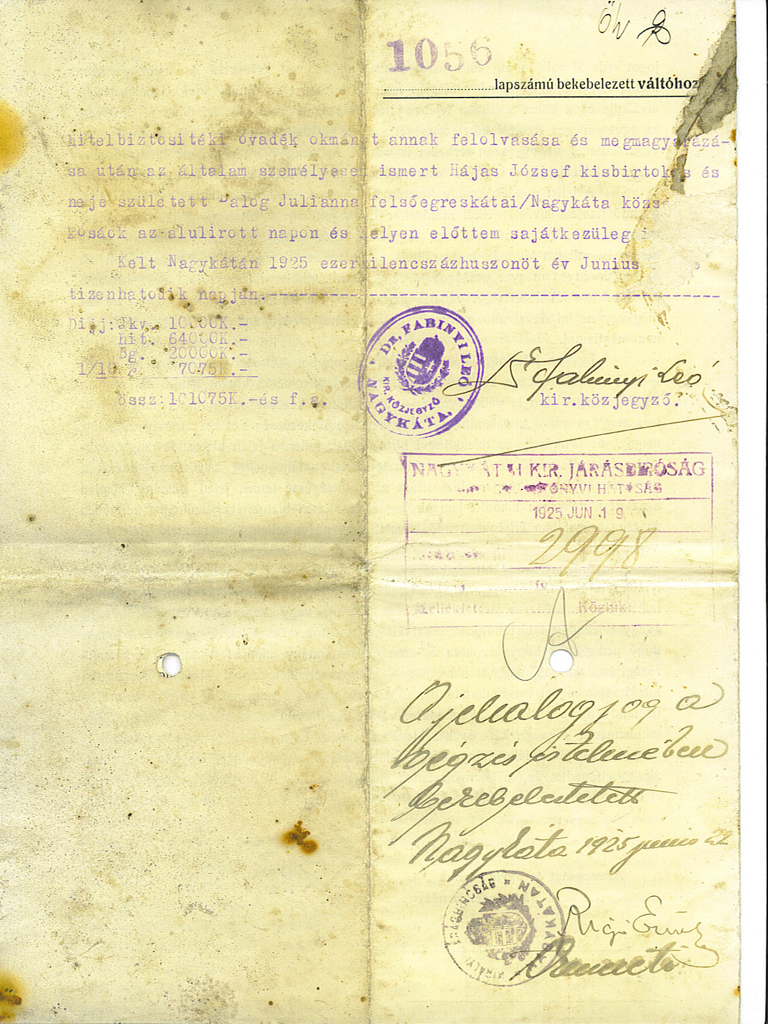 1056
lapszámú bekebelezett váltóhoz
Hitelbiztositéki óvadék okmányt annak felolvasása és megmagyarázá-
sa után az általam személyesen ismert Hájas József kisbirtokos és
neje született Balog Julianna felsőegreskátai/Nagykáta közs
kosáok az alulirott napon és helyen előttem sajátkezüleg i
Kelt Nagykátán 1925 ezerkilencszázhuszonöt év Junius
tizenhatodik napján.
Dijj:Jkv. 10000K.-
hit. 64000K.-
Bg. 20000K.-
1/10 %. 7075K.-
össz:101075K.-és f.a.
DR. FABINYI LEÓ
KIR. KÖZJEGYZŐ
NAGYKÁTA.
Dr Fabinyi Leó
kir.közjegyző.
NAGYKÁTAI KIR. JÁRÁSBIRÓSÁG
KÖNYVI HATÓSÁG
1925 JUN. 19.
2998
A jelzálogjog a
végzés értelmében
bekebeleztetett
Nagykáta 1925 junio 22
NAGYKÁTÁN